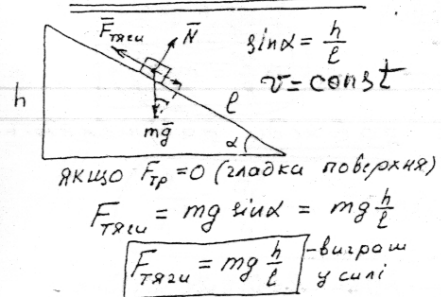 F̅тяги N̅ sinα = h/l
v = const
h l
mg̅ α
якщо Fтр = 0 (гладка поверхня)
Fтяги = mg sinα = mg h/l
Fтяги = mg h/l - виграш
у силі